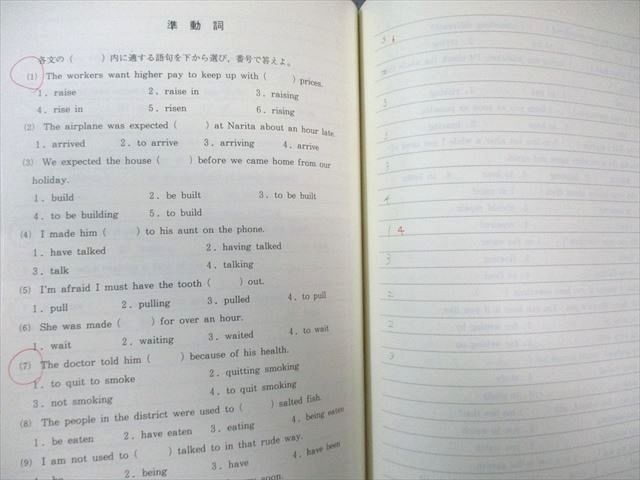 準動詞
各文の( )内に適する語句を下から選び, 番号で答えよ.
(1) The workers want higher pay to keep up with ( ) prices.
1. raise 2. raise in 3. raising
4. rise in 5. risen 6. rising
(2) The airplane was expected ( ) at Narita about an hour late.
1. arrived 2. to arrive 3. arriving 4. arrive
(3) We expected the house ( ) before we came home from our
holiday.
1. build 2. be built 3. to be built
4. to be building 5. to build
(4) I made him ( ) to his aunt on the phone.
1. have talked 2. having talked
3. talk 4. talking
(5) I'm afraid I must have the tooth ( ) out.
1. pull 2. pulling 3. pulled 4. to pull
(6) She was made ( ) for over an hour.
1. wait 2. waiting 3. waited 4. to wait
(7) The doctor told him ( ) because of his health.
1. to quit to smoke 2. quitting smoking
3. not smoking 4. to quit smoking
(8) The people in the district were used to ( ) salted fish.
1. be eaten 2. have eaten 3. eating 4. being eaten
(9) I am not used to ( ) talked to in that rude way.
1. be 2. being 3. have 4. have been
soon.
5 6
3
4
1 4
3
2
2
3